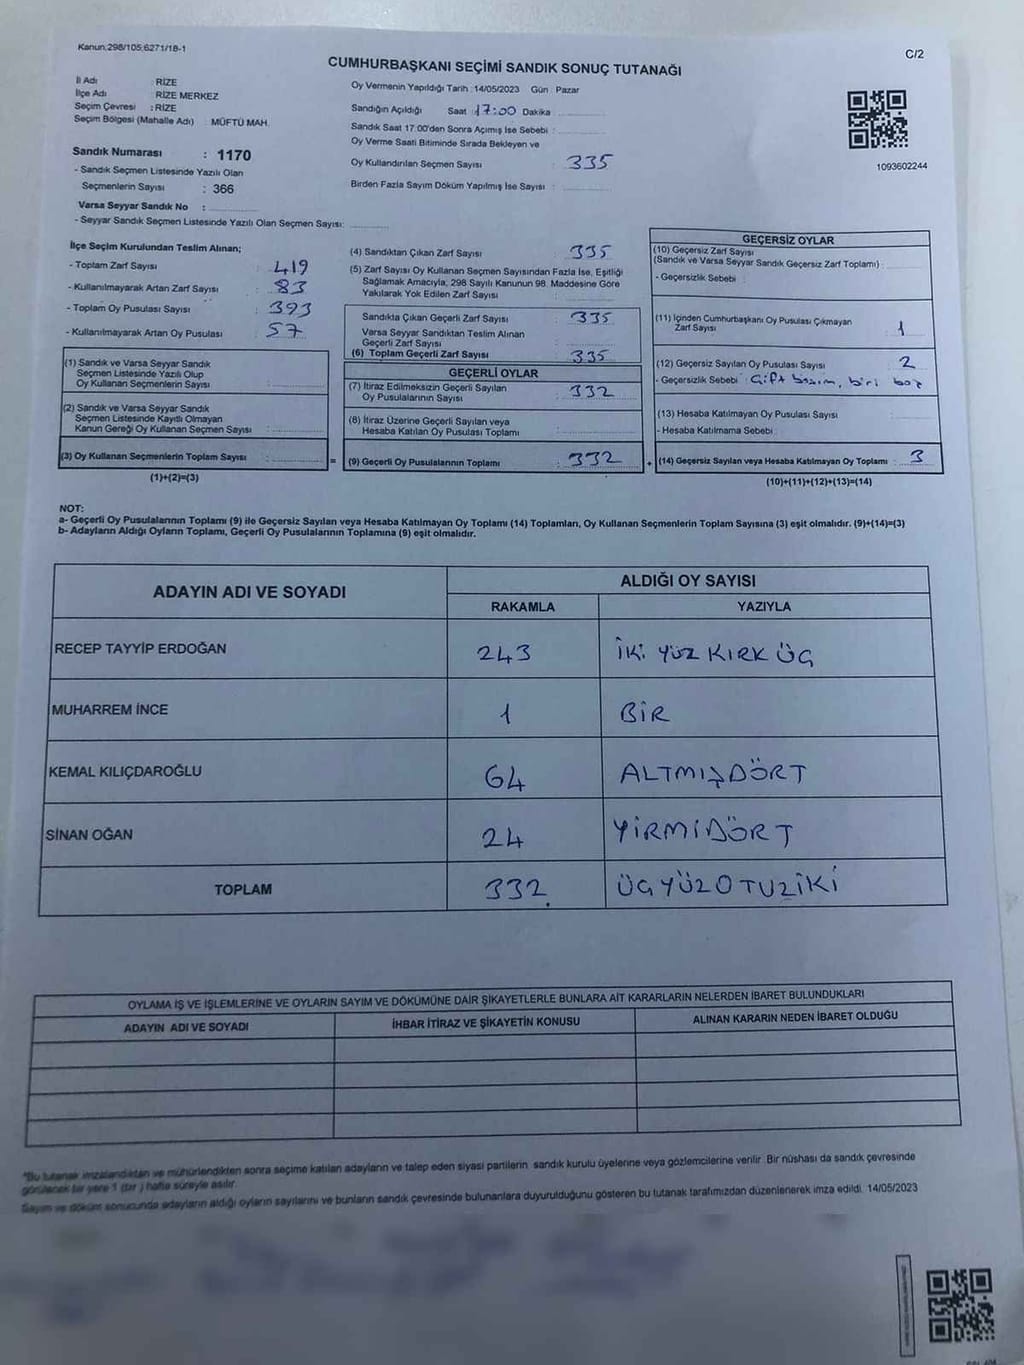 Kanun:298/105;6271/18-1
C/2
CUMHURBAŞKANI SEÇİMİ SANDIK SONUÇ TUTANAĞI
İl Adı : RİZE
İlçe Adı : RİZE MERKEZ
Seçim Çevresi : RİZE
Seçim Bölgesi (Mahalle Adı) : MÜFTÜ MAH.
Sandık Numarası : 1170
- Sandık Seçmen Listesinde Yazılı Olan
Seçmenlerin Sayısı : 366
Varsa Seyyar Sandık No :
- Seyyar Sandık Seçmen Listesinde Yazılı Olan Seçmen Sayısı:
Oy Vermenin Yapıldığı Tarih : 14/05/2023 Gün : Pazar
Sandığın Açıldığı Saat 17:00 Dakika
Sandık Saat 17:00'den Sonra Açımış İse Sebebi :
Oy Verme Saati Bitiminde Sırada Bekleyen ve
Oy Kullandırılan Seçmen Sayısı : 335
Birden Fazla Sayım Döküm Yapılmış İse Sayısı :
1093602244
İlçe Seçim Kurulundan Teslim Alınan;
- Toplam Zarf Sayısı : 419
- Kullanılmayarak Artan Zarf Sayısı : 83
- Toplam Oy Pusulası Sayısı : 393
- Kullanılmayarak Artan Oy Pusulası : 57
(1) Sandık ve Varsa Seyyar Sandık
Seçmen Listesinde Yazılı Olup
Oy Kullanan Seçmenlerin Sayısı :
(2) Sandık ve Varsa Seyyar Sandık
Seçmen Listesinde Kayıtlı Olmayan
Kanun Gereği Oy Kullanan Seçmen Sayısı :
(3) Oy Kullanan Seçmenlerin Toplam Sayısı :
(1)+(2)=(3)
=
(4) Sandıktan Çıkan Zarf Sayısı : 335
(5) Zarf Sayısı Oy Kullanan Seçmen Sayısından Fazla İse, Eşitliği
Sağlamak Amacıyla, 298 Sayılı Kanunun 98. Maddesine Göre
Yakılarak Yok Edilen Zarf Sayısı :
Sandıkta Çıkan Geçerli Zarf Sayısı : 335
Varsa Seyyar Sandıktan Teslim Alınan
Geçerli Zarf Sayısı :
(6) Toplam Geçerli Zarf Sayısı : 335
GEÇERLİ OYLAR
(7) İtiraz Edilmeksizin Geçerli Sayılan
Oy Pusulalarının Sayısı : 332
(8) İtiraz Üzerine Geçerli Sayılan veya
Hesaba Katılan Oy Pusulası Toplamı :
(9) Geçerli Oy Pusulalarının Toplamı : 332
+
GEÇERSİZ OYLAR
(10) Geçersiz Zarf Sayısı
(Sandık ve Varsa Seyyar Sandık Geçersiz Zarf Toplamı) :
- Geçersizlik Sebebi :
(11) İçinden Cumhurbaşkanı Oy Pusulası Çıkmayan
Zarf Sayısı : 1
(12) Geçersiz Sayılan Oy Pusulası Sayısı : 2
- Geçersizlik Sebebi : Çift basım, biri boş
(13) Hesaba Katılmayan Oy Pusulası Sayısı :
- Hesaba Katılmama Sebebi :
(14) Geçersiz Sayılan veya Hesaba Katılmayan Oy Toplamı : 3
(10)+(11)+(12)+(13)=(14)
NOT:
a- Geçerli Oy Pusulalarının Toplamı (9) ile Geçersiz Sayılan veya Hesaba Katılmayan Oy Toplamı (14) Toplamları, Oy Kullanan Seçmenlerin Toplam Sayısına (3) eşit olmalıdır. (9)+(14)=(3)
b- Adayların Aldığı Oyların Toplamı, Geçerli Oy Pusulalarının Toplamına (9) eşit olmalıdır.
ADAYIN ADI VE SOYADI
ALDIĞI OY SAYISI
RAKAMLA YAZIYLA
RECEP TAYYİP ERDOĞAN 243 İKİ YÜZ KIRK ÜÇ
MUHARREM İNCE 1 BİR
KEMAL KILIÇDAROĞLU 64 ALTMIŞDÖRT
SİNAN OĞAN 24 YİRMİDÖRT
TOPLAM 332 ÜÇYÜZOTUZİKİ
OYLAMA İŞ VE İŞLEMLERİNE VE OYLARIN SAYIM VE DÖKÜMÜNE DAİR ŞİKAYETLERLE BUNLARA AİT KARARLARIN NELERDEN İBARET BULUNDUKLARI
ADAYIN ADI VE SOYADI İHBAR İTİRAZ VE ŞİKAYETİN KONUSU ALINAN KARARIN NEDEN İBARET OLDUĞU
*Bu tutanak imzalandıktan ve mühürlendikten sonra seçime katılan adayların ve talep eden siyasi partilerin sandık kurulu üyelerine veya gözlemcilerine verilir. Bir nüshası da sandık çevresinde
görülecek bir yere 1 (bir ) hafta süreyle asılır.
Sayım ve döküm sonucunda adayların aldığı oyların sayılarını ve bunların sandık çevresinde bulunanlara duyurulduğunu gösteren bu tutanak tarafımızdan düzenlenerek imza edildi. 14/05/2023